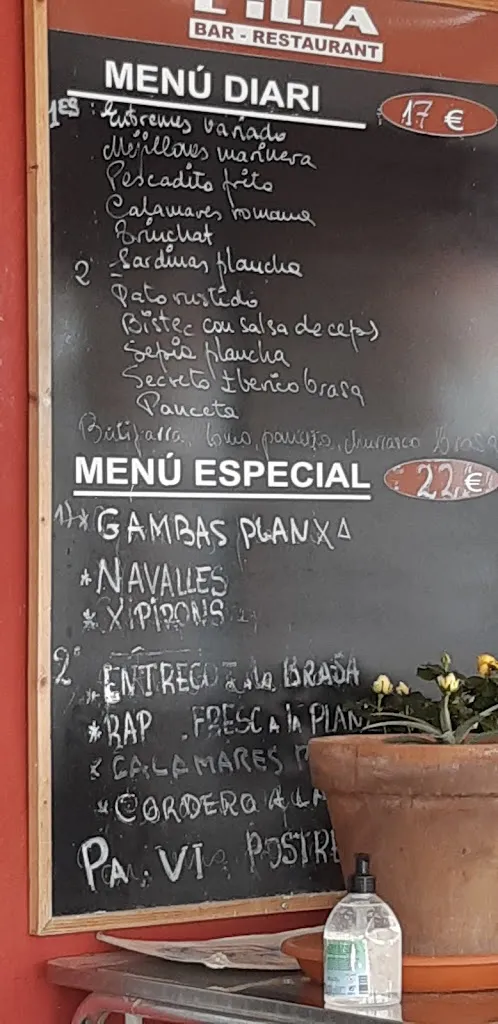 L'ILLA
BAR - RESTAURANT
MENÚ DIARI 17 €
1ES: Entremes variado
Mejillones marinera
Pescadito frito
Calamares romana
Trinchat
2 Sardinas plancha
Pato rustido
Bistec con salsa de ceps
Sepia plancha
Secreto Iberico brasa
Panceta
Butifarra, lomo, churrasco Brasa
MENÚ ESPECIAL 22 €
1)* GAMBAS PLANXA
*NAVALLES
*XIPIRONS
2º
*ENTRECOT a la BRASA
*RAP FRESC a la PLAN
*CALAMARES
*CORDERO A LA
PA. VI POSTRE